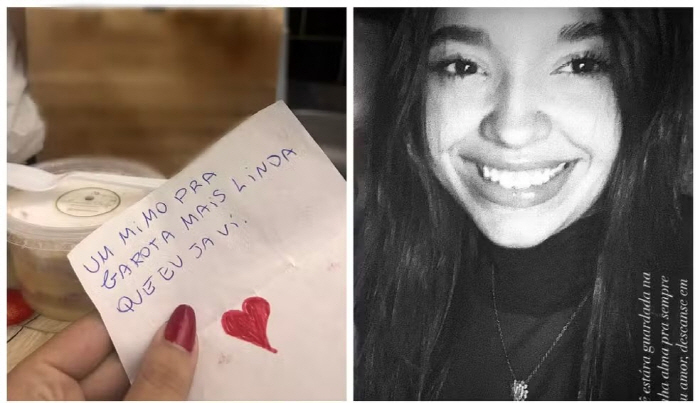 UM MIMO PRA
GAROTA MAIS LINDA
QUE EU JA VI!
estára guardada na
alma pra sempre
amor, descanse em